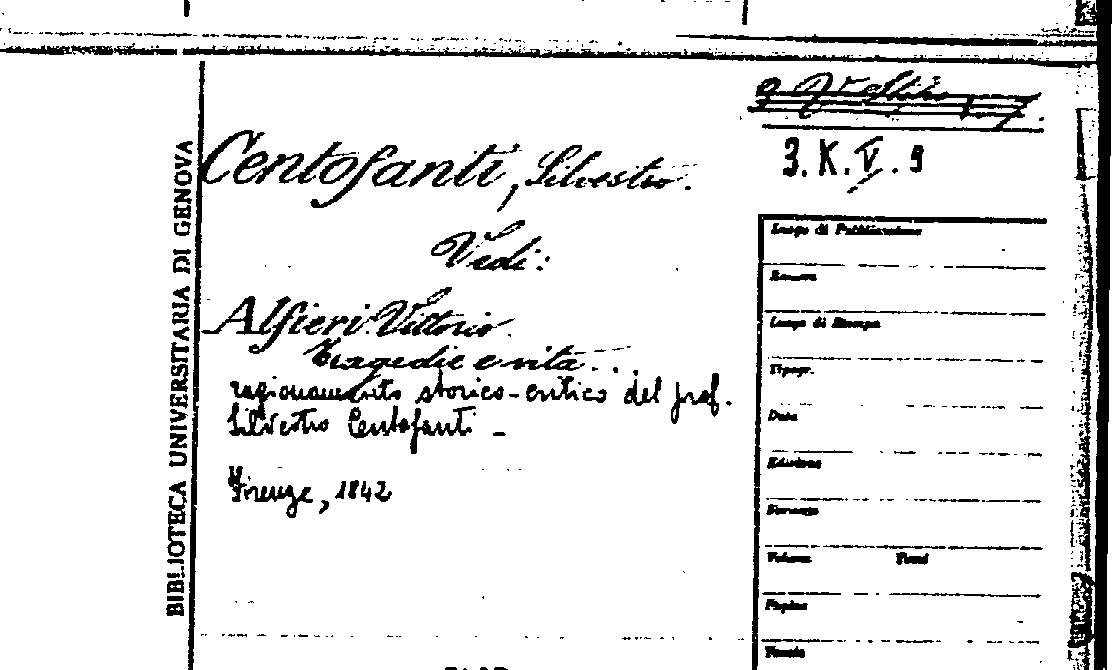 3.K.V.9
Centofanti, Silvestro.
Vedi:
Alfieri Vittorio.
Tragedie e vita...
ragionamento storico-critico del prof.
Silvestro Centofanti -
Firenze, 1842
BIBLIOTECA UNIVERSITARIA DI GENOVA
Luogo di Pubblicazione
Numero
Luogo di Stampa
Tipogr.
Data
Edizione
Formato
Volume Tomi
Pagine
Tavole